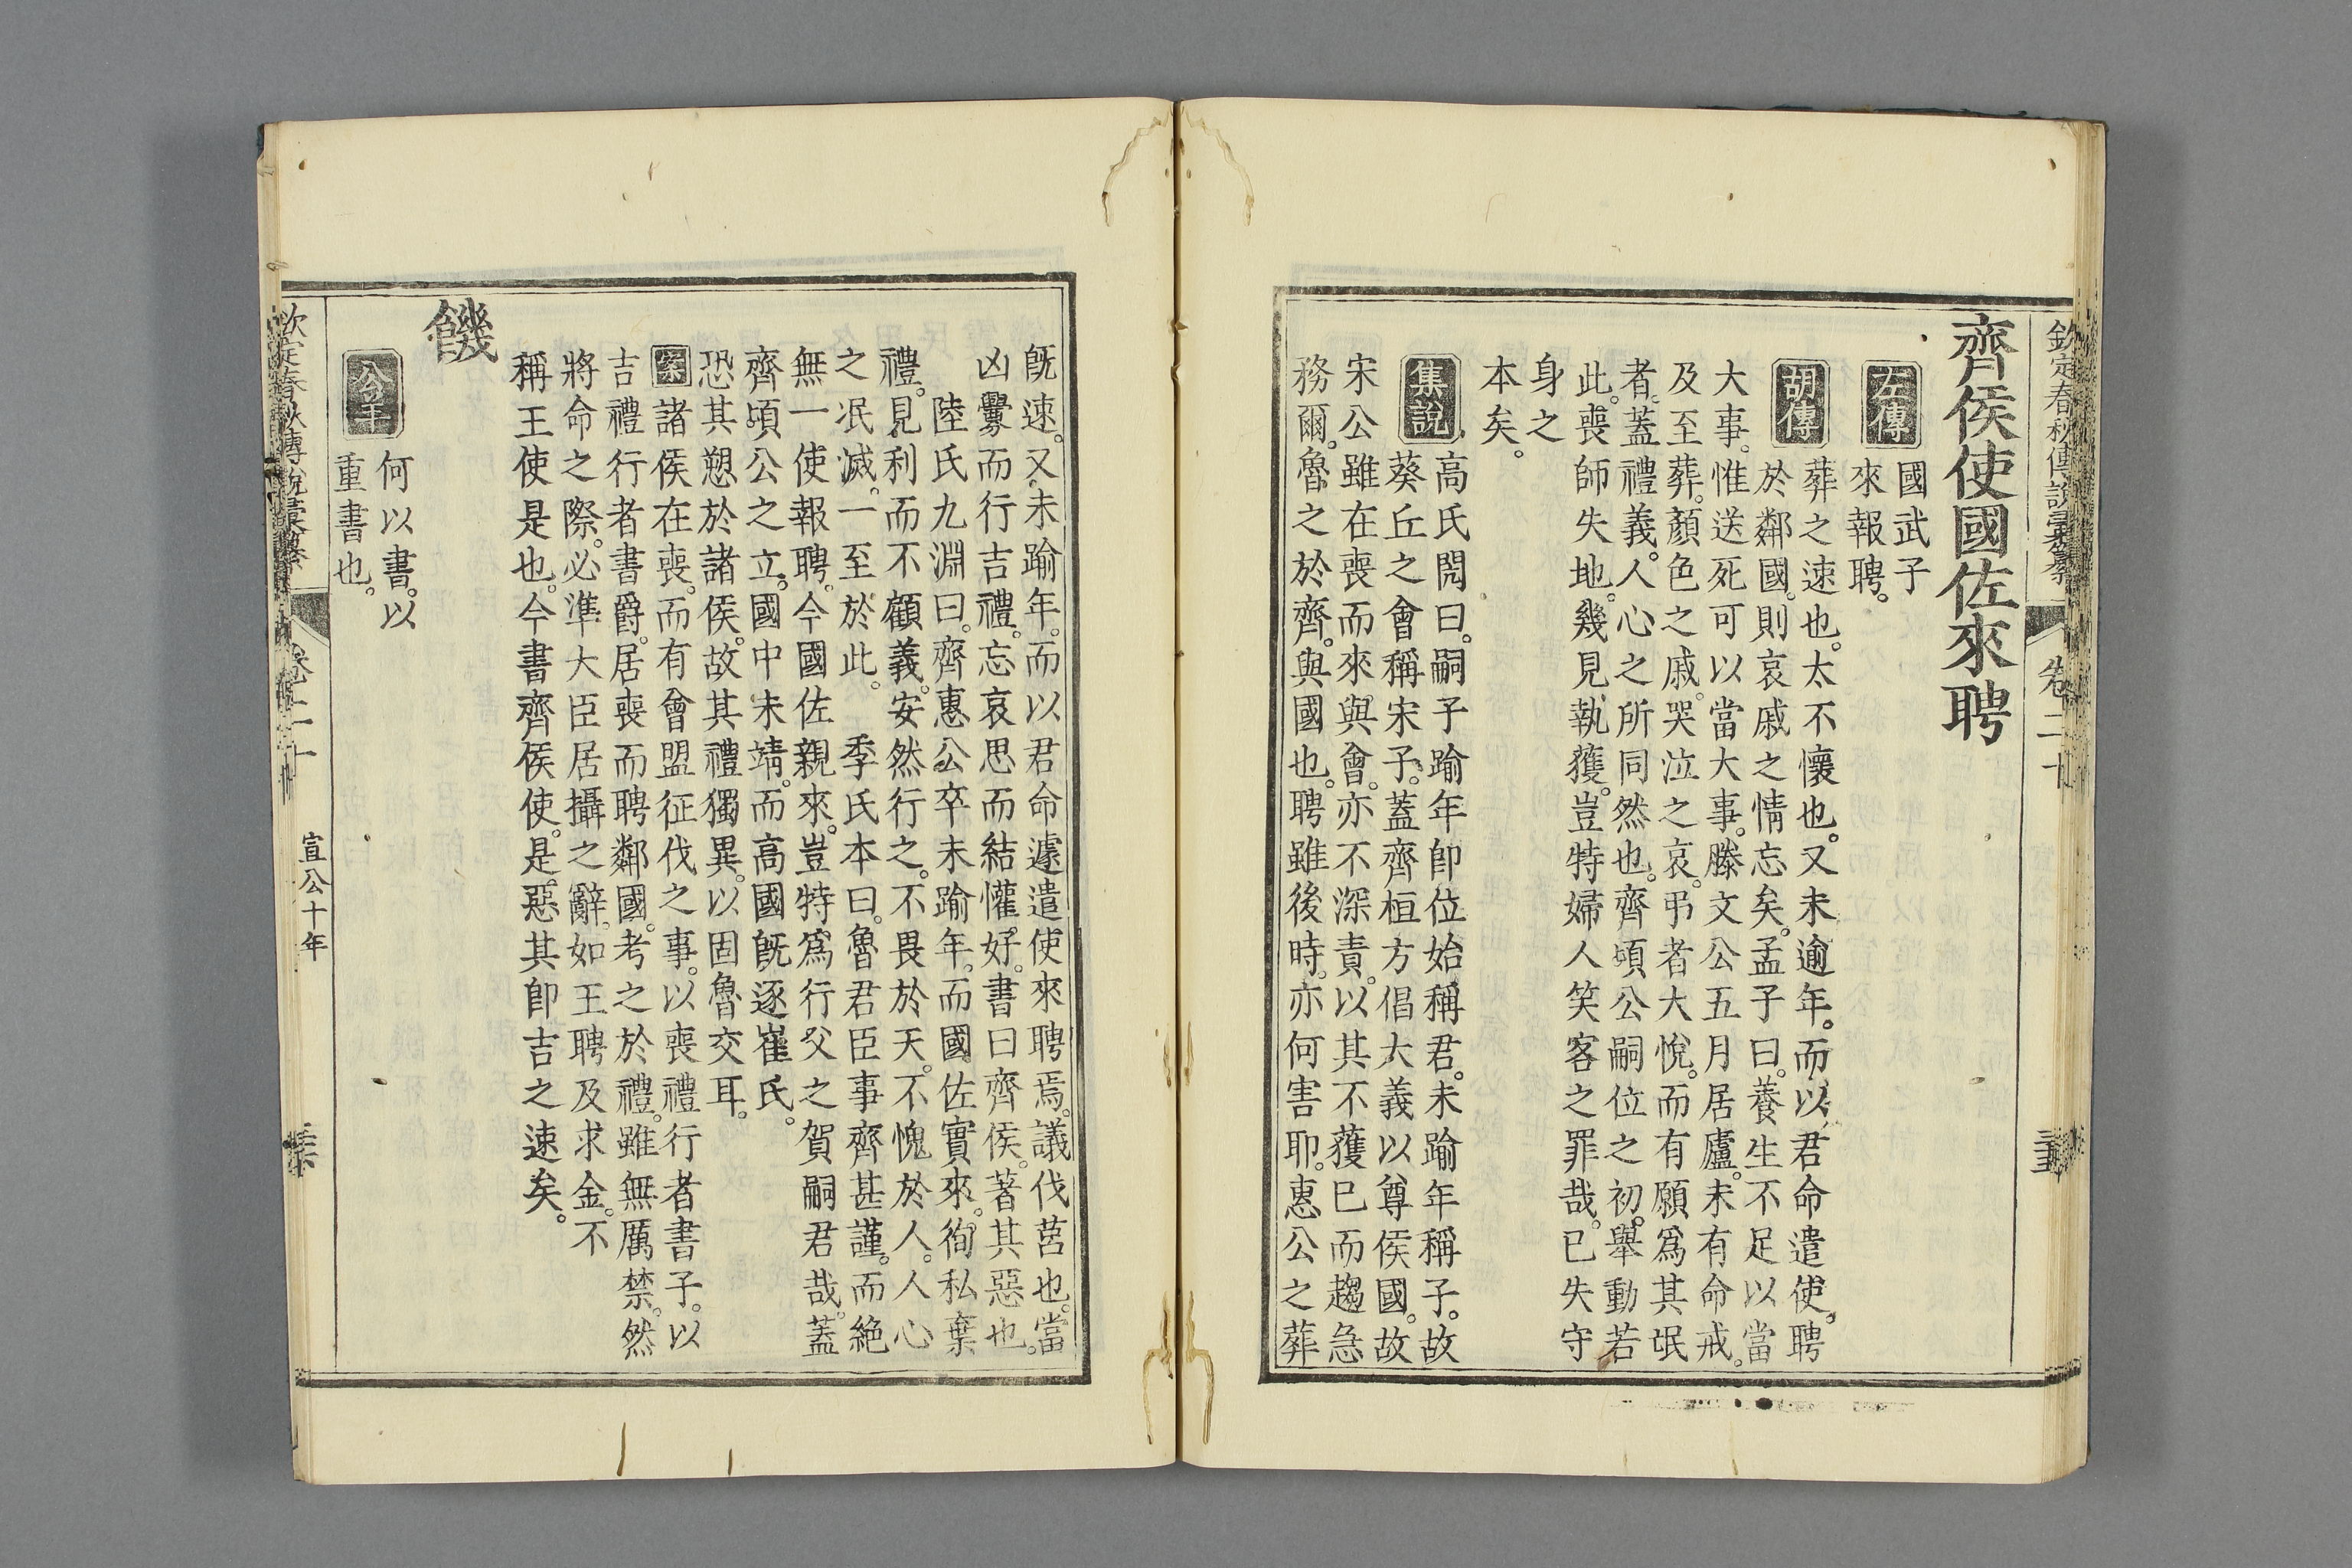 欽定春秋傳說彙纂
卷二十
齊侯使國佐來聘
左傳
國武子
來報聘。
胡傳
葬之速也。太不懷也。又未逾年。而以君命遣使。聘
於鄰國。則哀戚之情忘矣。孟子曰。養生不足以當
大事。惟送死可以當大事。滕文公五月居廬。未有命戒。
及至葬。顏色之戚。哭泣之哀。弔者大悅。而有願爲其氓
者。蓋禮義。人心之所同然也。齊頃公嗣位之初。舉動若
此。喪師失地。幾見執獲。豈特婦人笑客之罪哉。已失守
身之
本矣。
集說
高氏閌曰。嗣子踰年卽位始稱君。未踰年稱子。故
葵丘之會稱宋子。蓋齊桓方倡大義以尊侯國。故
宋公雖在喪而來與會。亦不深責。以其不獲已而趨急
務爾。魯之於齊。與國也。聘雖後時。亦何害耶。惠公之葬
旣速。又未踰年。而以君命遽遣使來聘焉。議伐莒也。當
凶釁而行吉禮。忘哀思而結懽好。書曰齊侯。著其惡也。
陸氏九淵曰。齊惠公卒未踰年。而國佐實來。徇私棄
禮。見利而不顧義。安然行之。不畏於天。不愧於人。人心
之泯滅。一至於此。 季氏本曰。魯君臣事齊甚謹。而絕
無一使報聘。今國佐親來。豈特爲行父之賀嗣君哉。蓋
齊頃公之立。國中未靖。而高國旣逐崔氏。
恐其愬於諸侯。故其禮獨異。以固魯交耳。
案諸侯在喪。而有會盟征伐之事。以喪禮行者書子。以
吉禮行者書爵。居喪而聘鄰國。考之於禮。雖無厲禁。然
將命之際。必準大臣居攝之辭。如王聘及求金。不
稱王使是也。今書齊侯使。是惡其卽吉之速矣。
饑
公羊
何以書。以
重書也。
欽定春秋傳說彙纂
卷二十
宣公十年